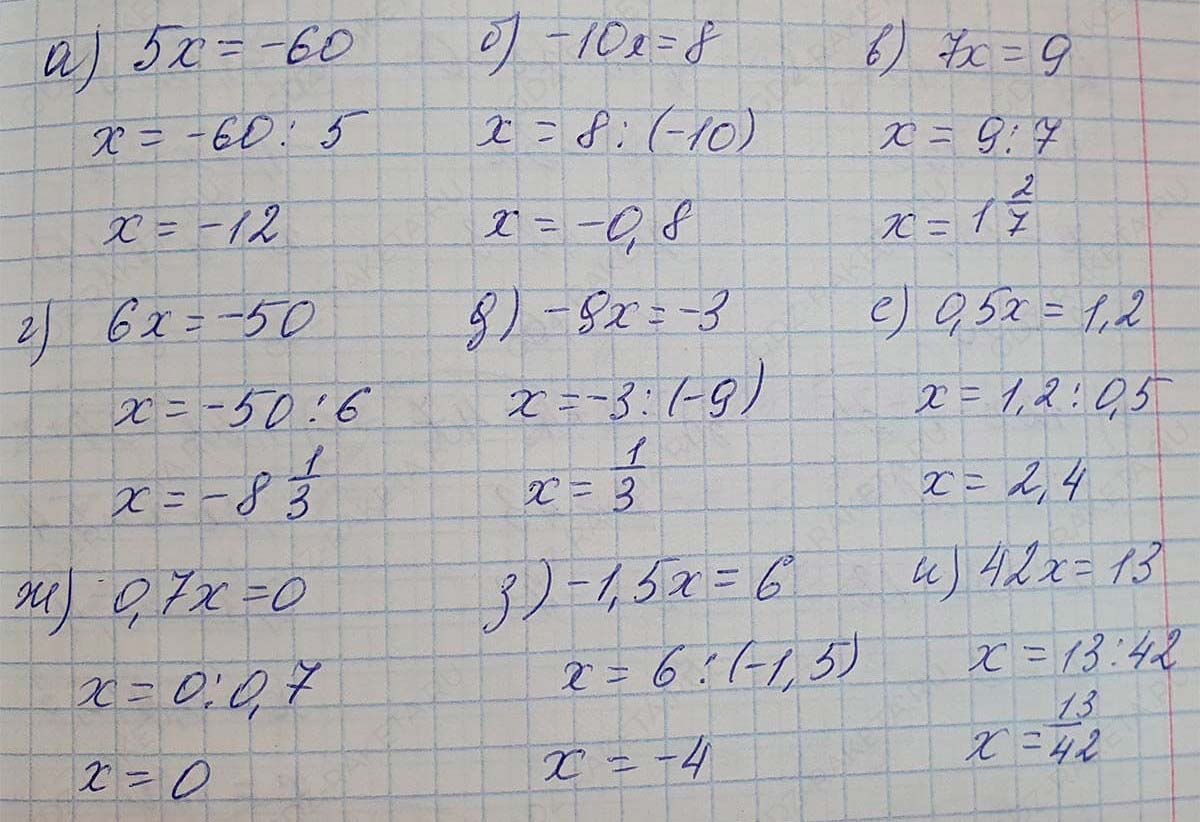 а) 5x = -60 б) -10x = 8 в) 7x = 9
x = -60 : 5 x = 8 : (-10) x = 9 : 7
x = -12 x = -0,8 x = 1 2/7
г) 6x = -50 д) -9x = -3 е) 0,5x = 1,2
x = -50 : 6 x = -3 : (-9) x = 1,2 : 0,5
x = -8 1/3 x = 1/3 x = 2,4
ж) 0,7x = 0 з) -1,5x = 6 и) 42x = 13
x = 0 : 0,7 x = 6 : (-1,5) x = 13 : 42
x = 0 x = -4 x = 13/42